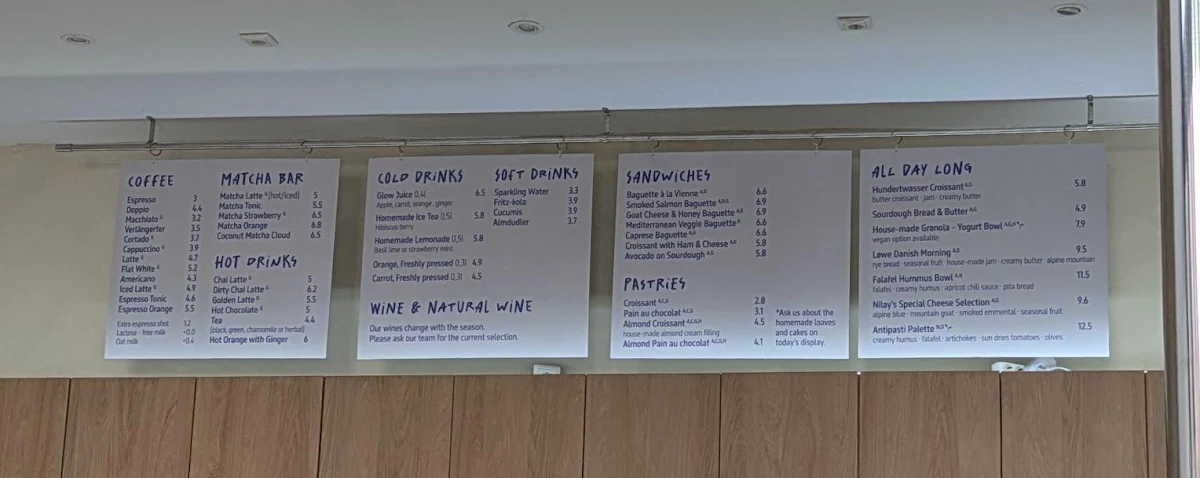 COFFEE
Espresso 3
Doppio 4.4
Macchiato G 3.2
Verlängerter 3.5
Cortado G 3.7
Cappuccino G 3.9
Latte G 4.7
Flat White G 5.2
Americano 4.3
Iced Latte G 4.9
Espresso Tonic 4.6
Espresso Orange 5.5
Extra espresso shot 1.2
Lactose - free milk
Oat milk +0.4
MATCHA BAR
Matcha Latte G (hot/iced) 5
Matcha Tonic 5.5
Matcha Strawberry G 6.5
Matcha Orange 6.8
Coconut Matcha Cloud 6.5
HOT DRINKS
Chai Latte G 5
Dirty Chai Latte G 6.2
Golden Latte G 5.5
Hot Chocolate G 5
Tea 4.4
(black, green, chamomile or herbal)
Hot Orange with Ginger 6
COLD DRINKS
Glow Juice 0,4l 6.5
Apple, carrot, orange, ginger
Homemade Ice Tea 0,5l 5.8
Hibiscus berry
Homemade Lemonade 0,5l 5.8
Basil lime or strawberry mint
Orange, Freshly pressed 0,3l 4.9
Carrot, Freshly pressed 0,3l 4.5
SOFT DRINKS
Sparkling Water 3.3
Fritz-kola 3.9
Cucumis 3.9
Almdudler 3.7
WINE & NATURAL WINE
Our wines change with the season.
Please ask our team for the current selection.
SANDWICHES
Baguette à la Vienne A,G 6.6
Smoked Salmon Baguette 6.9
Goat Cheese & Honey Baguette A,G 6.9
Mediterranean Veggie Baguette 6.6
Caprese Baguette A,G 6.6
Croissant with Ham & Cheese A,G 5.8
Avocado on Sourdough A,G 5.8
PASTRIES
Croissant 2.8
Pain au chocolat 3.1
Almond Croissant 4.5
house-made almond cream filling
Almond Pain au chocolat 4.1
*Ask us about the
homemade loaves
and cakes on
today's display.
ALL DAY LONG
Hundertwasser Croissant A,G 5.8
butter croissant · jam · creamy butter
Sourdough Bread & Butter A,G 4.9
House-made Granola – Yogurt Bowl 7.9
vegan option available
Løwe Danish Morning A,G 9.5
rye bread · seasonal fruit · house-made jam · creamy butter · alpine mountain
Falafel Hummus Bowl A,N 11.5
falafel · creamy humus · apricot chili sauce · pita bread
Nilay's Special Cheese Selection A,G 9.6
alpine blue · mountain goat · smoked emmental · seasonal fruit
Antipasti Palette 12.5
creamy humus · falafel · artichokes · sun dries tomatoes · olives